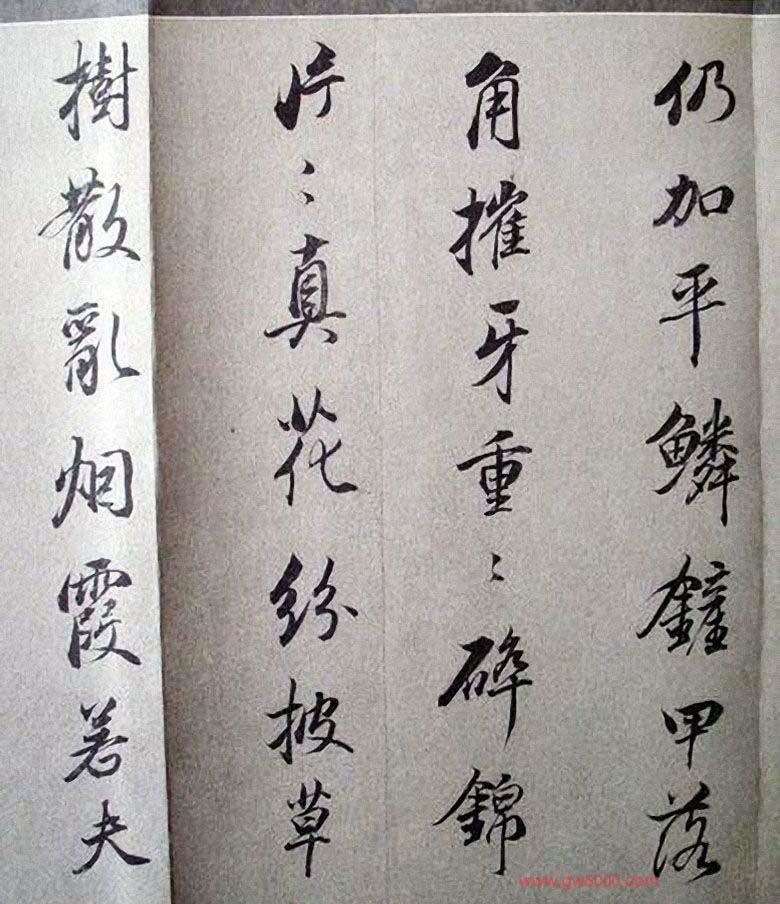 仍加平鱗鏟甲落
角摧牙重〻碎錦
片〻真花紛披草
樹散亂烟霞若夫
www.gw5000.com